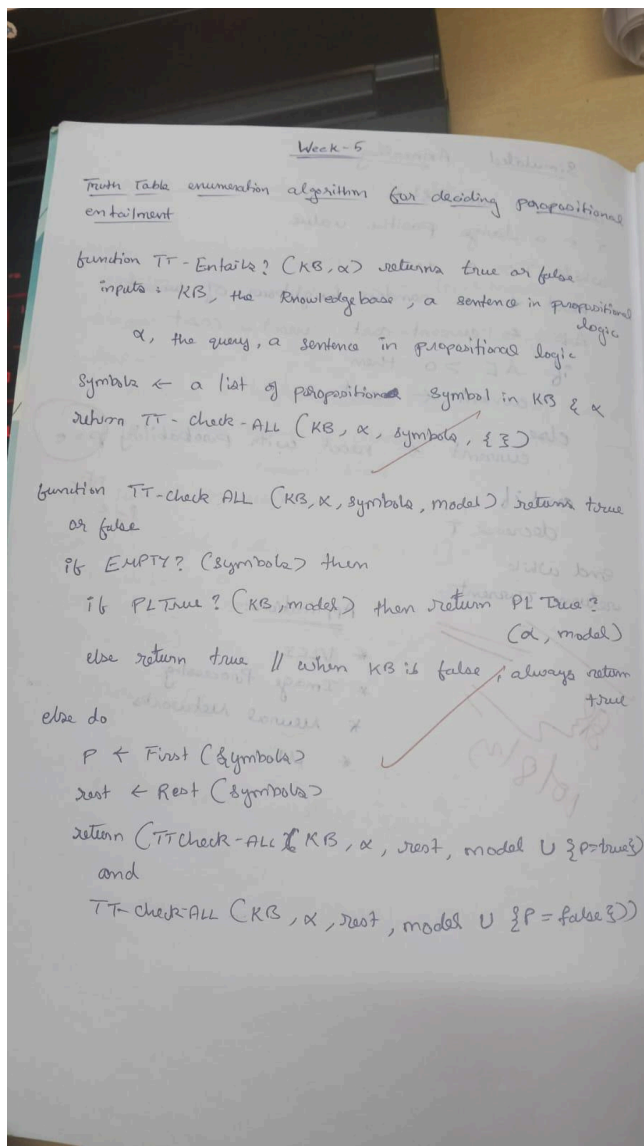 Week-5
Truth Table enumeration algorithm for deciding propositional
entailment
function TT-Entails? (KB, α) returns true or false
inputs: KB, the Knowledgebase, a sentence in propositional
logic
α, the query, a sentence in propositional logic
symbols ← a list of propositional symbol in KB & α
return TT-check-ALL (KB, α, symbols, { })
function TT-check ALL (KB, α, symbols, model) returns true
or false
if EMPTY? (symbols) then
if PLTrue? (KB, model) then return PL True?
(α, model)
else return true // when KB is false, always return
true
else do
P ← First (symbols)
rest ← Rest (symbols)
return (TTCheck-ALL (KB, α, rest, model ∪ {P=true})
and
TT-check-ALL (KB, α, rest, model ∪ {P = false}))